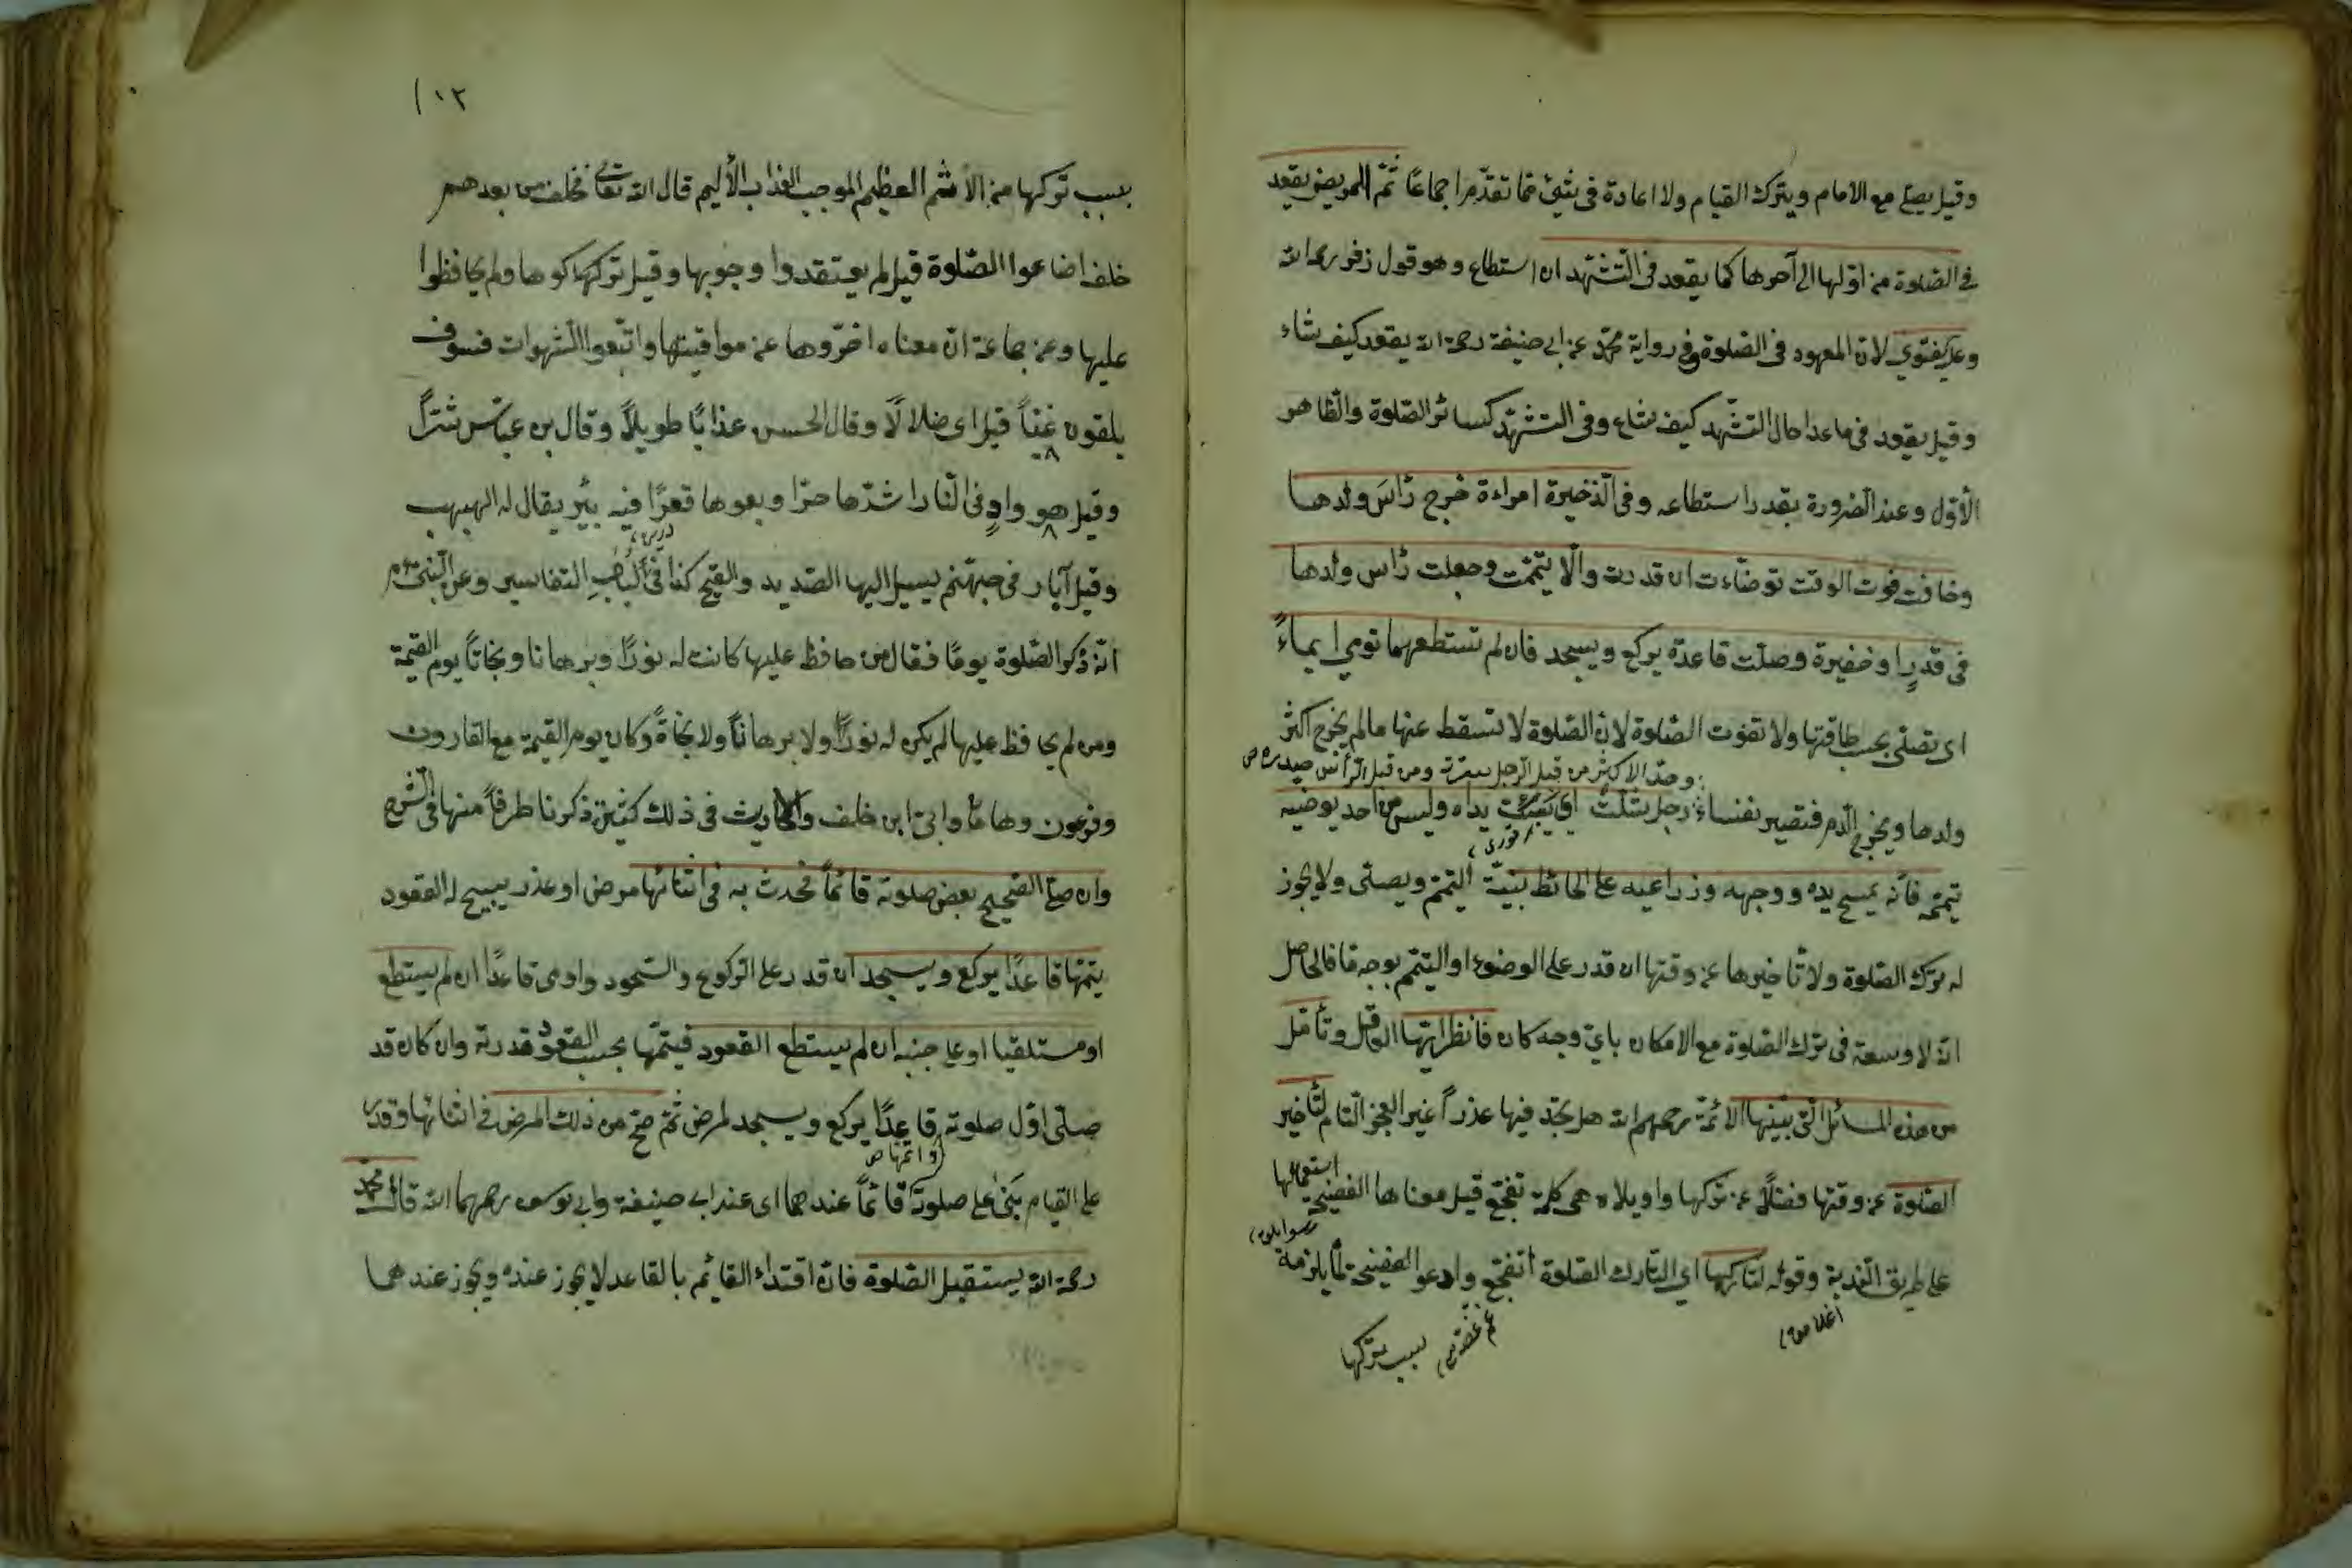 وقيل يصلي مع الامام ويترك القيام ولا اعادة فى شئ مما تقدّم اجماعًا ثمّ المريض يقعد
فى الصّلوة من اوّلها الى آخرها كما يقعد فى التّشهّد ان استطاع وهو قول زفر رحمه الله
وعليه الفتوي لانّ المعهود فى الصّلوة وفى رواية محمّد عن ابى حنيفة رحمة الله يقعد كيف شاء
وقيل يقعد فى ما عدا حال التّشهّد كيف شاء وفى التّشهّد كسائر الصّلوة والظّاهر
الأوّل وعند الضّرورة بقدر استطاعه وفى الذّخيرة امراءة خرج رأسَ ولدها
وخافت فوت الوقت توضّاءت ان قدرت والّا تيمّمت وجعلت رأس ولدها
فى قدرٍ او خفيرة وصلّت قاعدة يركع ويسجد فان لم تستطعهما تومي ايماءً
اى تصلّى بحسب طاقتها ولا تفوت الصّلوة لانّ الصّلوة لا تسقط عنها ما لم يخرج اكثر
وحدّ الاكثر من قبل الرّجل سرته ومن قبل الرّأس صدره ص
ولدها ويخرج الدّم فتصير نفساء رجل شلّت اى يبست يداه وليس من احد يوضيه
تيمّمه فانّه يمسح يده ووجهه وذراعيه على الحائط بنيّة التّيمّم ويصلّى ولا يجوز
له ترك الصّلوة ولا تأخيرها عن وقتها ان قدر على الوضوء او التّيمّم بوجه ما فالحاصل
انّه لا وسعة فى ترك الصّلوة مع الامكان بايّ وجه كان فانظر ايّها العاقل وتأمّل
من هذه المسائل الّتى بيّنها الائمّة رحمهم الله هل تجد فيها عذراً غير العجز التّام لتأخير
الصّلوة عن وقتها فضلاً عن تركها واويلاه هى كلمة تفجّع قيل معناها الفضيحة استعمالها
على طريق النّدبة وقوله لتاركها اى لتارك الصّلوة اتفجّع وادعو الفضيحة لما يلزمه
بسبب تركها
١٠٢
بسبب تركها من الأثم العظيم الموجب العذاب الأليم قال الله تعالى فخلف من بعدهم
خلف اضاعوا الصّلوة قيل لم يعتقدوا وجوبها وقيل تركها كوها ولم يحافظوا
عليها وعن جماعة انّ معناه اخّروها عن مواقيتها واتّبعوا الشّهوات فسوف
يلقون غيّاً قيل اى ضلالاً وقال الحسن عذابًا طويلاً وقال بن عبّاس شرّاً
وقيل هو وادٍ فى النّار اشدّها حرّا وبعوها قعرًا فيه بئر يقال له الهبهب
وقيل آبار فى جهنّم يسيل اليها الصّديد والقيح كذا فى لُبابِ التفاسير وعن النّبىّ عم
انّه ذكر الصّلوة يومًا فقال من حافظ عليها كانت له نورًا وبرهانا ونجاتاً يوم القيمة
ومن لم يحافظ عليها لم يكن له نوراً ولا برهاناً ولا نجاةً وكان يوم القيمة مع القارون
وفرعون وهامان وابى ابن خلف والاحاديث فى ذلك كثيرة ذكرنا طرفاً منها فى الشّرح
وان صلّى الصّحيح بعض صلوته قائماً فحدث به فى اثنائها مرض او عذر يبيح له القعود
يتمّها قاعدًا يركع ويسجد ان قدر على الرّكوع والسّجود واومى قاعدًا ان لم يستطع
او مستلقيا او على جنبه ان لم يستطع القعود فيتمّها بحسب القعود قدرته وان كان قد
صلّى اوّل صلوته قاعدًا يركع ويسجد لمرض ثمّ صحّ من ذلك المرض فى اثنائها وقدر
واتمها ص
على القيام بَنَى على صلوته قائماً عندهما اى عند ابى حنيفة وابى يوسف رحمهما الله قال محمّد
رحمة الله يستقبل الصّلوة فانّ اقتداء القائم بالقاعد لا يجوز عنده ويجوز عندهما